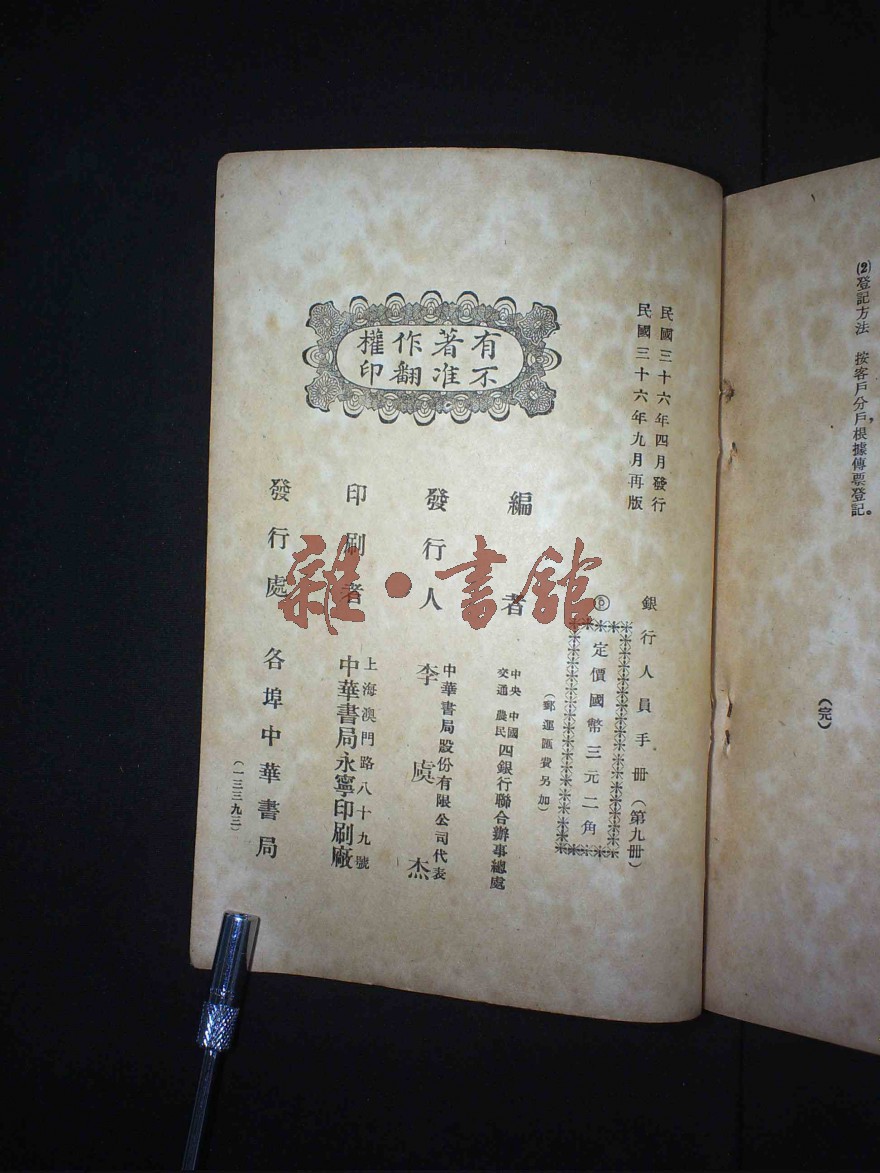 (2)登記方法　按客戶分戶，根據傳票登記。
(完)
民國三十六年四月發行
民國三十六年九月再版
有著作權
不准翻印
銀行人員手冊（第九冊）
定價國幣三元二角
（郵運匯費另加）
編者
中央　中國
交通　農民
四銀行聯合辦事總處
發行人
中華書局股份有限公司代表
李虞杰
印刷者
上海澳門路八十九號
中華書局永寧印刷廠
發行處
各埠中華書局
（一三三九三）
雜·書館